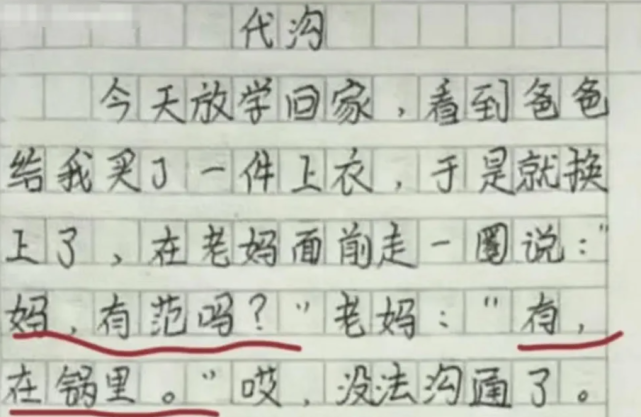 代沟
今天放学回家，看到爸爸
给我买了一件上衣，于是就换
上了，在老妈面前走一圈说："
妈，有范吗？"老妈："有，
在锅里。"哎，没法沟通了。